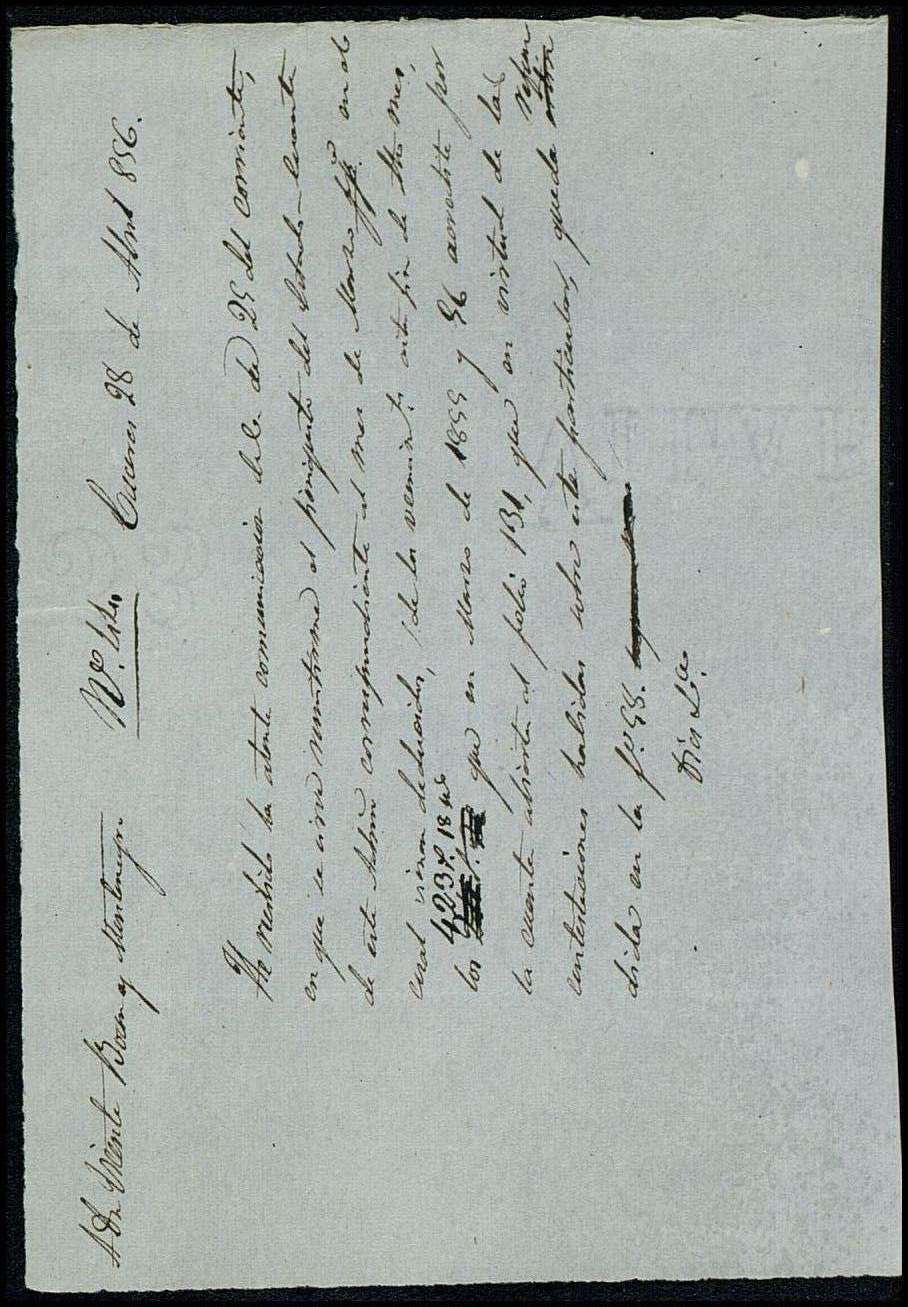 A Dn Vicente Bocan y Montenegro
Nº. Caceres 28 de Abril 856.
He recibido la atenta comunicacion de V. de 25 del corriente,
en que se sirve remitirme el finiquito del Estado-cuenta
de esta Admon correspondiente al mes de Marzo ppº. en el
cual vienen deducidos, de los vencimtos. este fin de dho mes,
los 4,237.18 que en Marzo de 1855 y 56 acredité por
la cuenta abierta al folio 131, que en virtud de las
contestaciones habidas sobre este particular, queda refun
dida en la fº. 55.
Dios &ª.